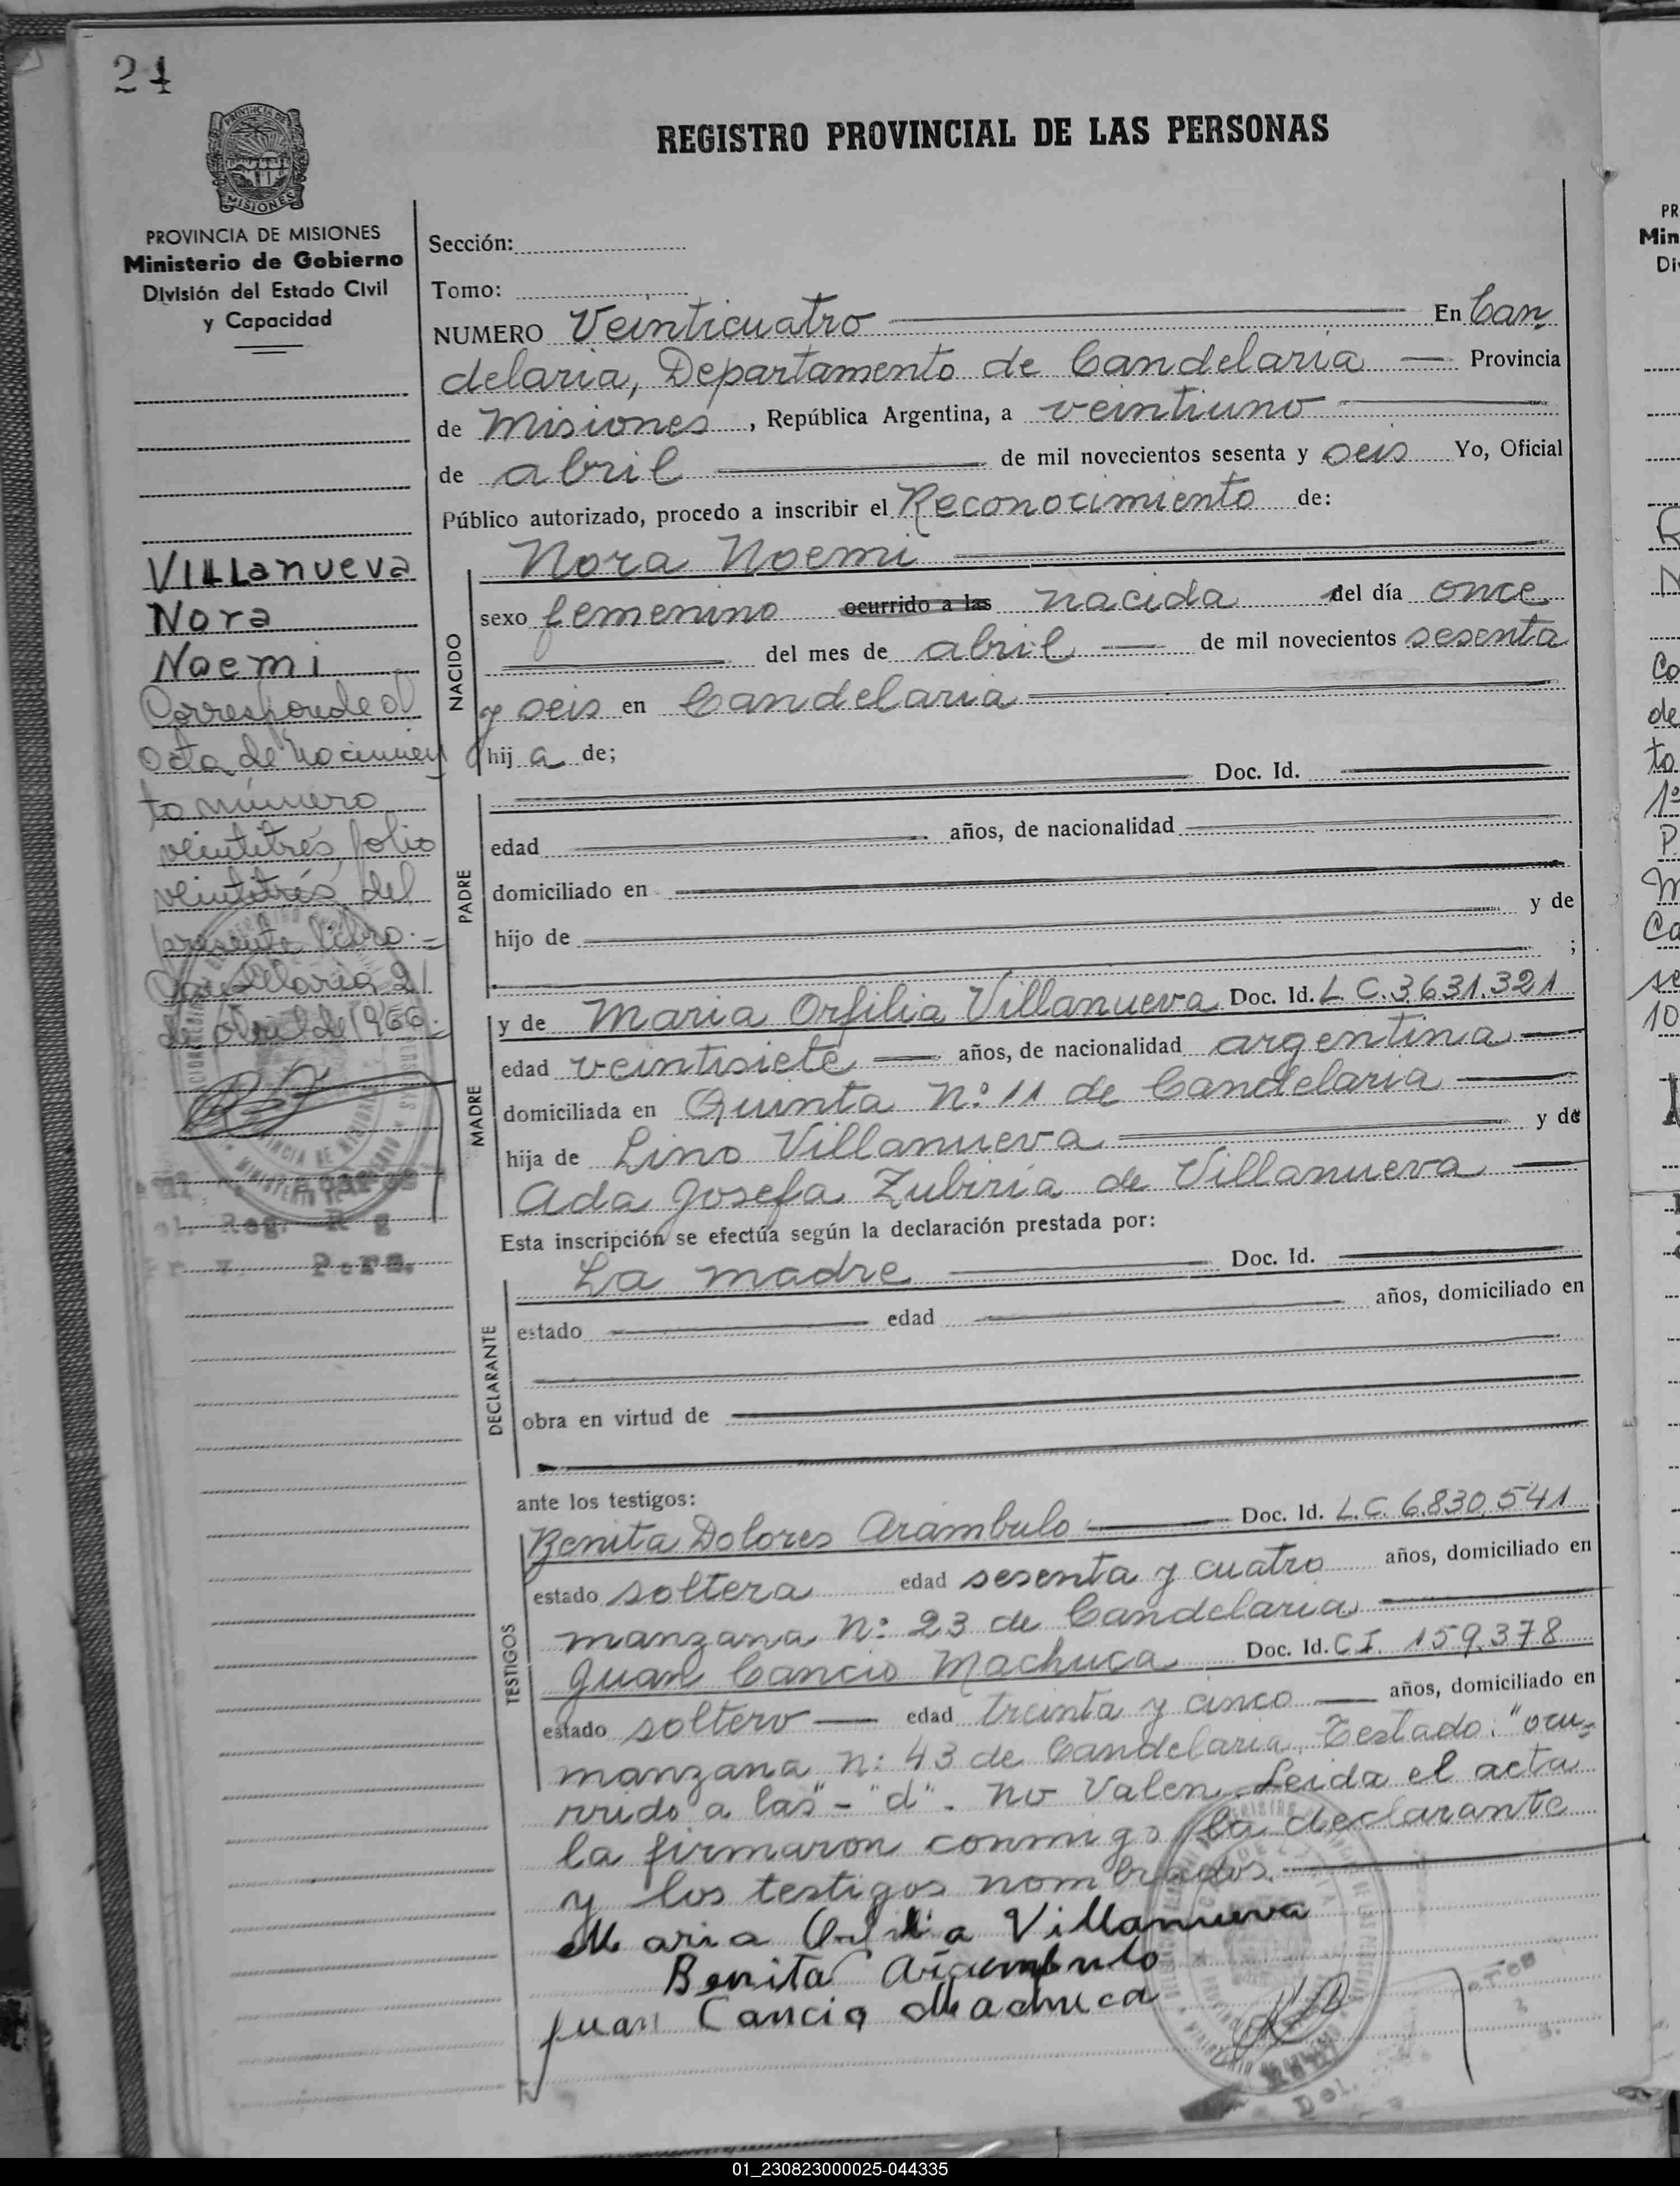 24
PROVINCIA DE
MISIONES
REGISTRO PROVINCIAL DE LAS PERSONAS
PROVINCIA DE MISIONES
Ministerio de Gobierno
División del Estado Civil
y Capacidad
Villanueva
Nora
Noemi
Corresponde al
acta de nacimien
to número
veintitrés, folio
veintitrés, del
presente libro.=
Candelaria, 21
de abril de 1966.=
Sección:
Tomo:
NUMERO Veinticuatro En Can
delaria, Departamento de Candelaria Provincia
de Misiones, República Argentina, a veintiuno
de abril de mil novecientos sesenta y seis Yo, Oficial
Público autorizado, procedo a inscribir el Reconocimiento de:
NACIDO
Nora Noemi
sexo femenino ocurrido a las nacida del día once
del mes de abril de mil novecientos sesenta
y seis en Candelaria
hija de;
PADRE
Doc. Id.
edad años, de nacionalidad
domiciliado en
hijo de y de
;
MADRE
y de Maria Orfilia Villanueva Doc. Id. L C. 3631.321
edad veintisiete años, de nacionalidad argentina
domiciliada en Quinta N:º 11 de Candelaria
hija de Lino Villanueva y de
Ada Josefa Zubiría de Villanueva
Esta inscripción se efectúa según la declaración prestada por:
DECLARANTE
La madre Doc. Id.
estado edad años, domiciliado en
obra en virtud de
ante los testigos:
TESTIGOS
Benita Dolores Arambulo Doc. Id. L.C. 6.830.541
estado soltera edad sesenta y cuatro años, domiciliado en
manzana N:º 23 de Candelaria
Juan Cancio Machuca Doc. Id. C I. 159.378
estado soltero edad treinta y cinco años, domiciliado en
manzana n:º 43 de Candelaria. Testado: "ocu=
rrido a las" - "d". No Valen. Leida el acta
la firmaron conmigo la declarante
y los testigos nombrados.
Maria Orfilia Villanueva
Benita Arambulo
Juan Cancio Machuca
01_230823000025-044335